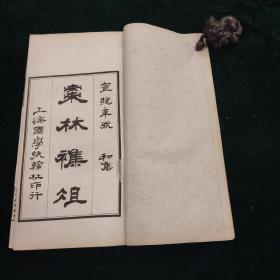 宣統辛亥 和集
棗林雜俎
上海國學扶輪社印行